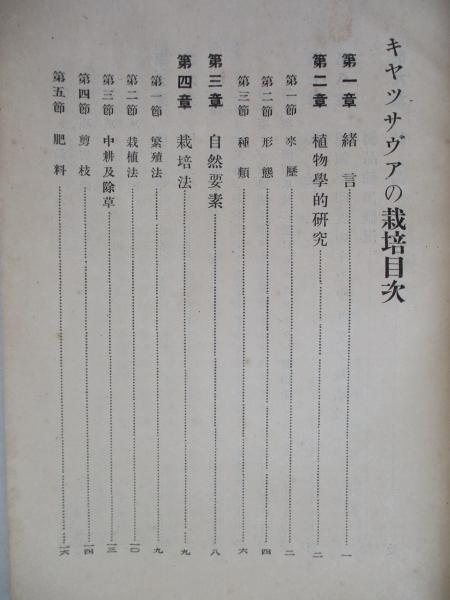 キヤツサヴアの栽培目次
第一章 緒言……一
第二章 植物學的研究……二
第一節 來歷……二
第二節 形態……四
第三節 種類……六
第三章 自然要素……八
第四章 栽培法……九
第一節 繁殖法……九
第二節 栽植法……一〇
第三節 中耕及除草……一三
第四節 剪枝……一四
第五節 肥料……一六